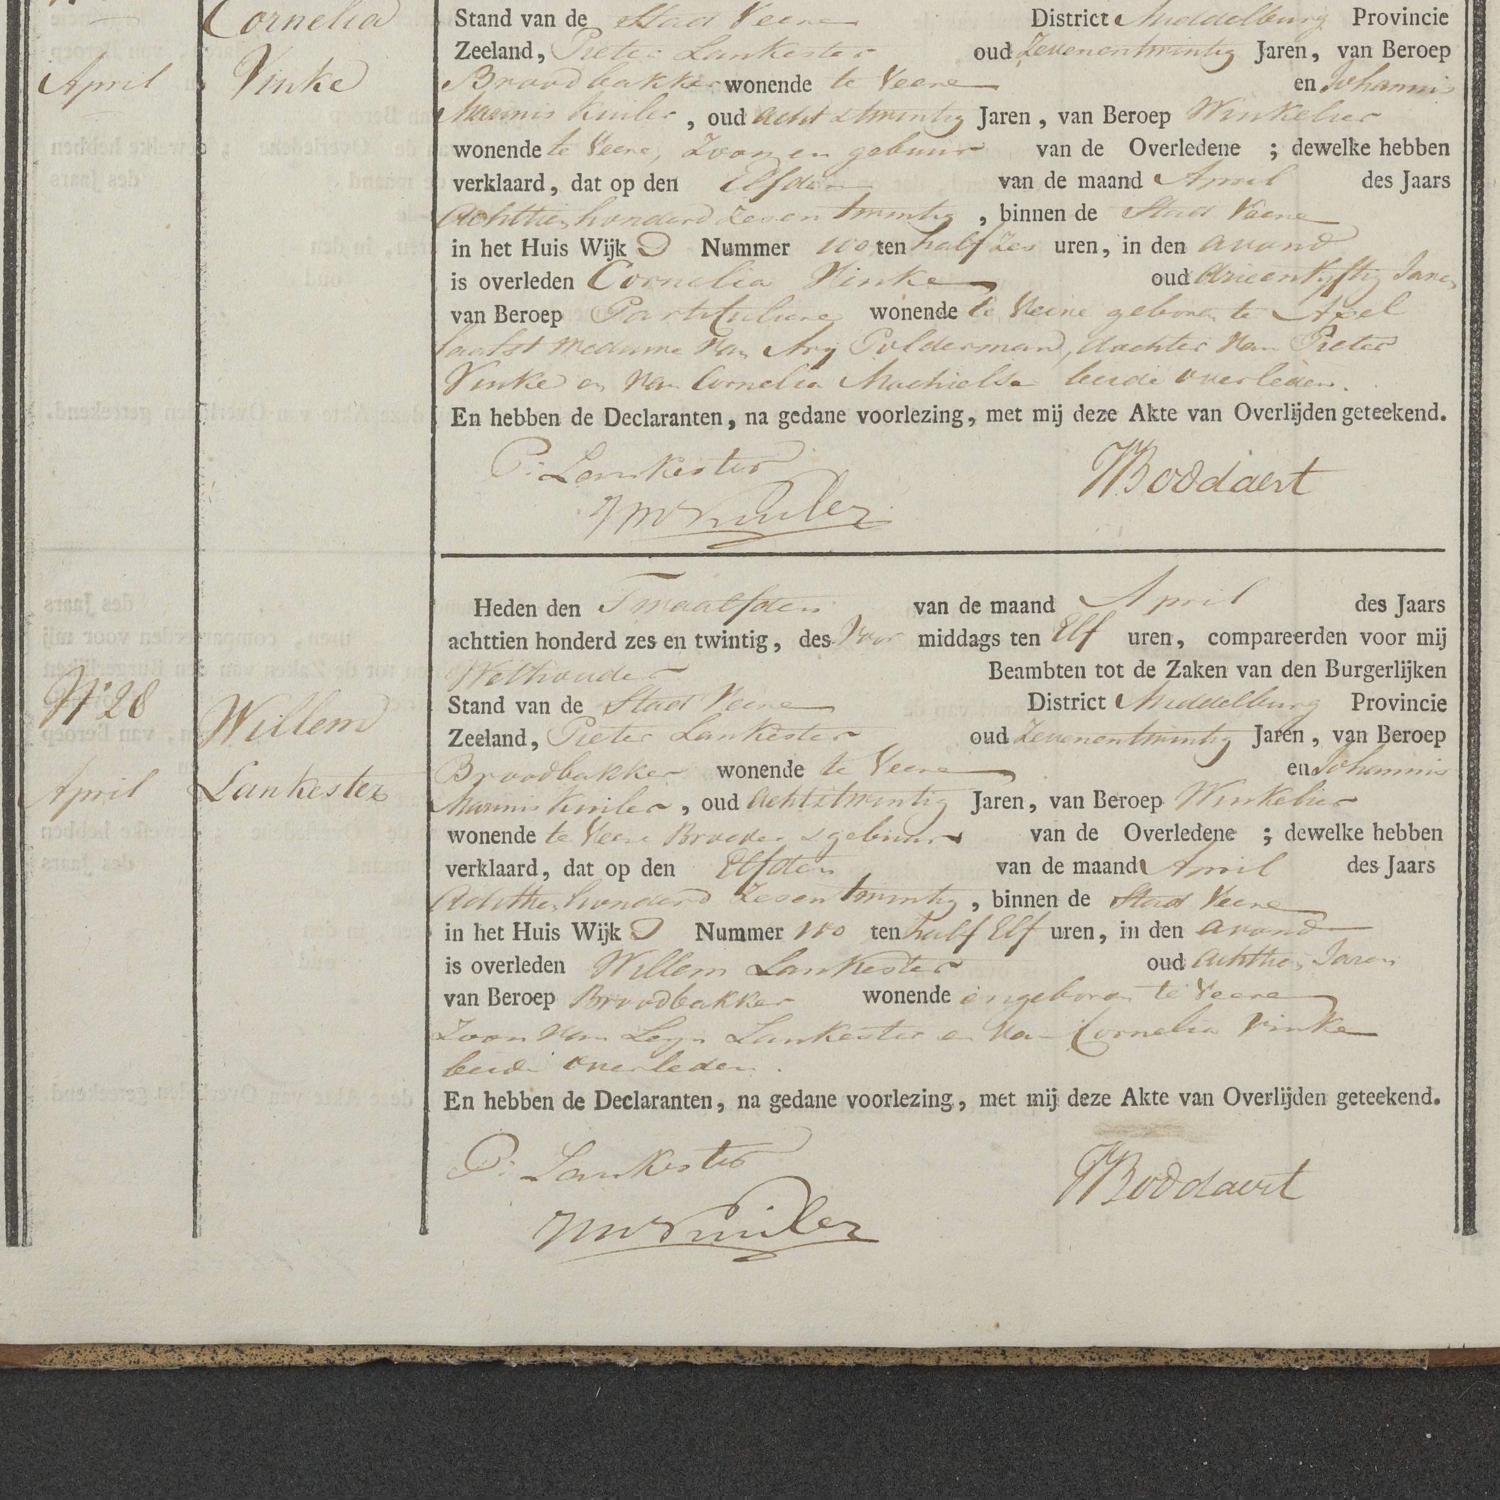 Cornelia
Vinke
April
Stand van de Stad Veere District Middelburg Provincie
Zeeland, Pieter Lankester oud Zevenentwintig Jaren, van Beroep
Broodbakker wonende te Veere en Johannis
Marinis Kuiler, oud acht & twintig Jaren, van Beroep Winkelier
wonende te Veere, Zoon en gebuur van de Overledene ; dewelke hebben
verklaard, dat op den Elfden van de maand April des Jaars
Achttienhonderd Zesentwintig, binnen de Stad Veere
in het Huis Wijk D Nummer 100 ten half Zes uren, in den avond
is overleden Cornelia Vinke oud drieenvyftig Jaren
van Beroep Partikuliere wonende te Veere geboren te Axel
laatst weduwe van Ary Polderman, dochter van Pieter
Vinke en van Cornelia Machielse beide overleden.
En hebben de Declaranten, na gedane voorlezing, met mij deze Akte van Overlijden geteekend.
P: Lankester
JBoddaert
JMKuiler
No 28
April
Willem
Lankester
Heden den Twaalfden van de maand April des Jaars
achttien honderd zes en twintig, des Voor middags ten Elf uren, compareerden voor mij
Wethouder Beambten tot de Zaken van den Burgerlijken
Stand van de Stad Veere District Middelburg Provincie
Zeeland, Pieter Lankester oud Zevenentwintig Jaren, van Beroep
Broodbakker wonende te Veere en Johannis
Marinis Kuiler, oud Acht & twintig Jaren, van Beroep Winkelier
wonende te Veere Broeder & gebuur van de Overledene ; dewelke hebben
verklaard, dat op den Elfden van de maand April des Jaars
Achttienhonderd Zesentwintig, binnen de Stad Veere
in het Huis Wijk D Nummer 100 ten half Elf uren, in den avond
is overleden Willem Lankester oud Achttien Jaren
van Beroep Broodbakker wonende en geboren te Veere
Zoon van Leyn Lankester en van Cornelia Vinke
beide overleden.
En hebben de Declaranten, na gedane voorlezing, met mij deze Akte van Overlijden geteekend.
P: Lankester
JBoddaert
JMKuiler